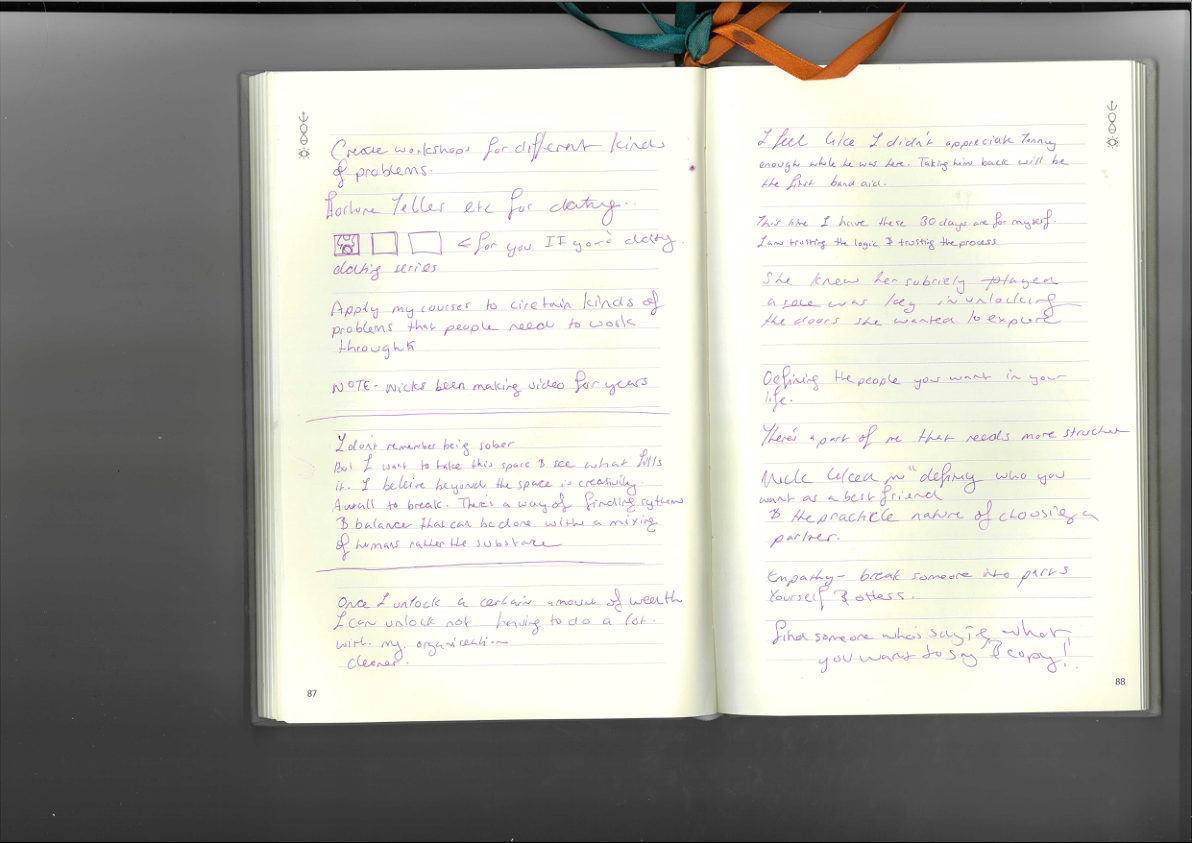 Create workshops for different kinds
of problems.
Fortune Teller etc for dating..
< for you IF you're dating.
dating series
Apply my courses to ciretain kinds of
problems that people need to work
through
NOTE - Nicks been making video for years
I don't remember being sober
But I want to take this space & see what fills
it. I beleive beyond the space is creativity.
A wall to break. There's a way of finding rythem
& balance that can be done with a mixing
of humans rather the substance
Once I unlock a certain amount of wealth
I can unlock not having to do a lot.
with my organization
cleaner.
87
I feel like I didn't appreciate
enough while he was here. Taking him back will be
the first band aid.
This time I have these 30 days are for myself.
I am trusting the logic & trusting the process
She knew her sobriety played
a role was key in unlocking
the doors she wanted to explore
Defining the people you want in your
life.
There's a part of me that needs more
Nick " defining who you
want as a best friend
& the nature of choosing a
partner.
Empathy - break someone into parts
Yourself & others.
find someone who's saying what
you want to say & copy!
88